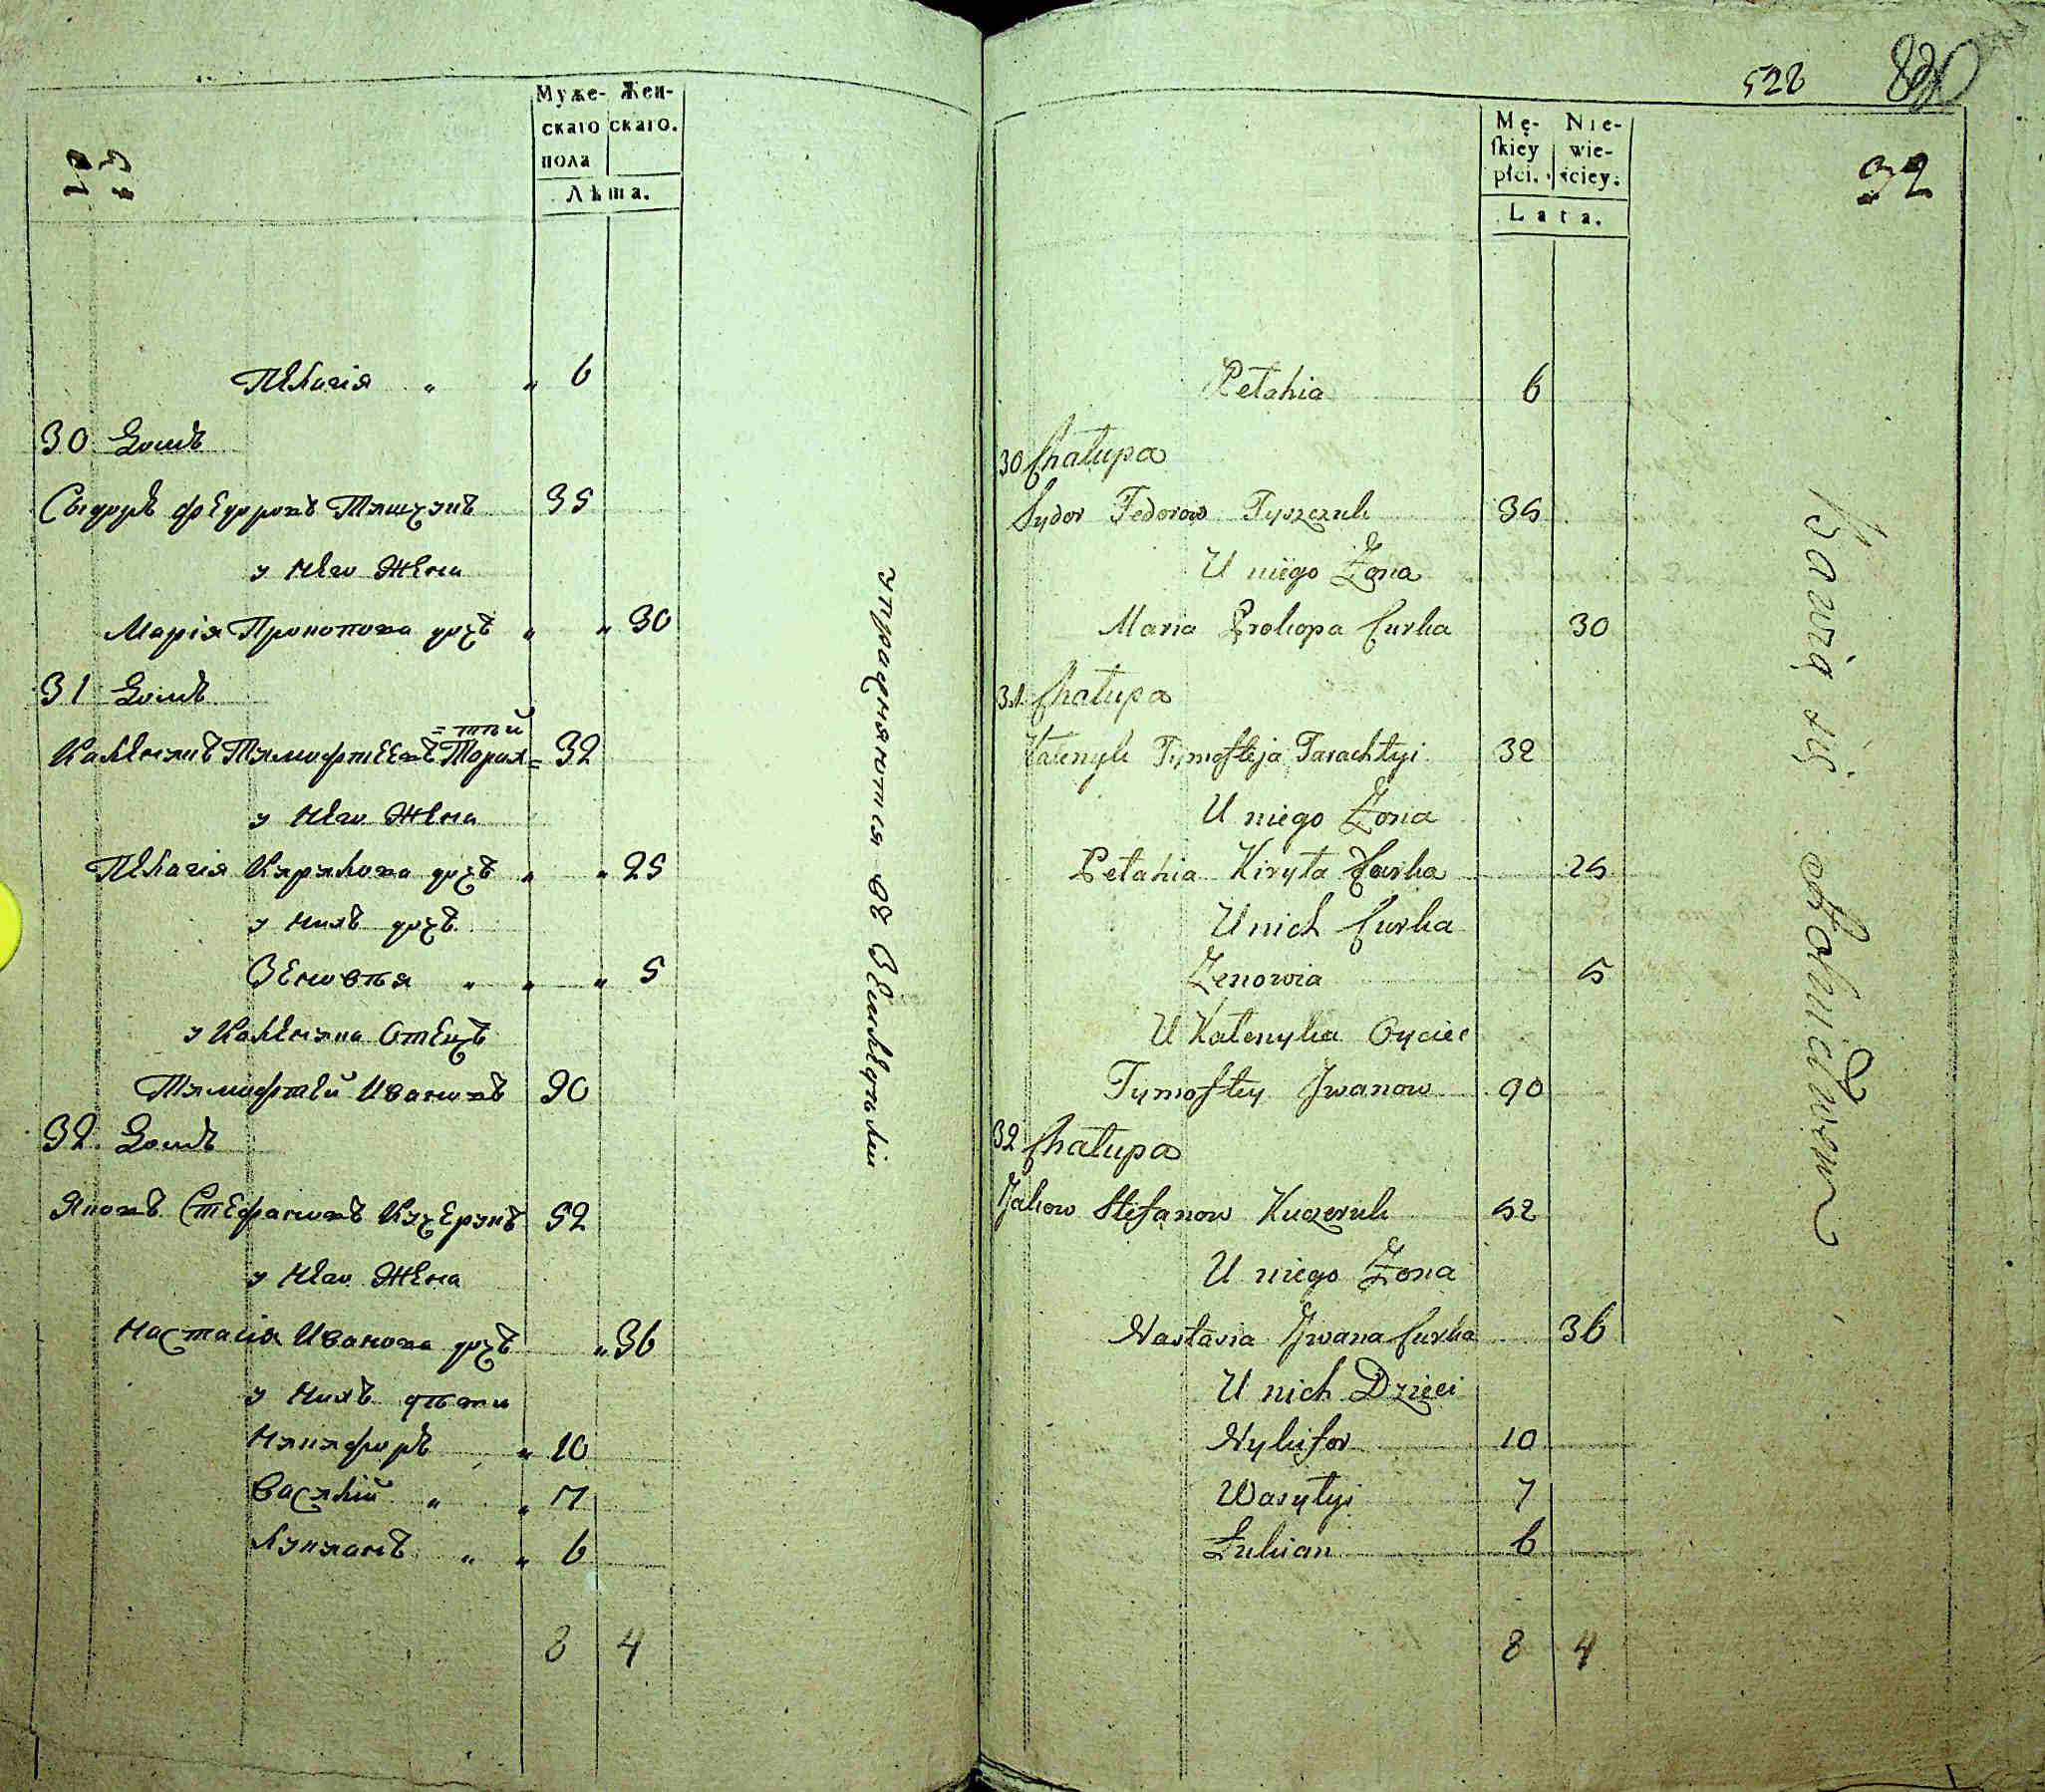 Муже- Жен-
скаго скаго.
пола
Лѣта.
Пелагія " " 6
30 Домъ
Сыдоръ Федоровъ Тишчукъ 35
у него Жена
Марія Прокопова дочь " " 30
31 Домъ
=тый
Калѣникъ Тимофтеевъ Торах= 32
у него Жена
Пелагія Кирилова дочь " " 25
у нихъ дочь
Зеновѣя " " " 5
у Калѣника Отецъ
Тимофтей Ивановъ 90
32 Домъ
Яковъ Стефановъ Кучерукъ 52
у него Жена
Настасія Иванова дочь " 36
у нихъ дѣти
Никифоръ " 10
Василій " " 7
Лукианъ " " 6
8 4
упражняются въ Земледѣліи
528
Mę- Nie-
skiey wie-
płci. ściey.
Lata.
32
Pelahia 6
30 Chałupa
Sydor Fedorow Tyszczuk 35
U niego Żona
Maria Prokopa Curka 30
31 Chałupa
Kalenyk Tymofteja Tarachtyi 32
U niego Żona
Pelahia Kiryła Curka 25
U nich Curka
Zenowia 5
U Kalenyka Oyciec
Tymoftey Jwanow 90
32 Chałupa
Jakow Stefanow Kuczeruk 52
U niego Żona
Nastasia Jwana Curka 36
U nich Dzieci
Nykifor 10
Wasylyi 7
Lukian 6
8 4
Bawią się Rolnictwem